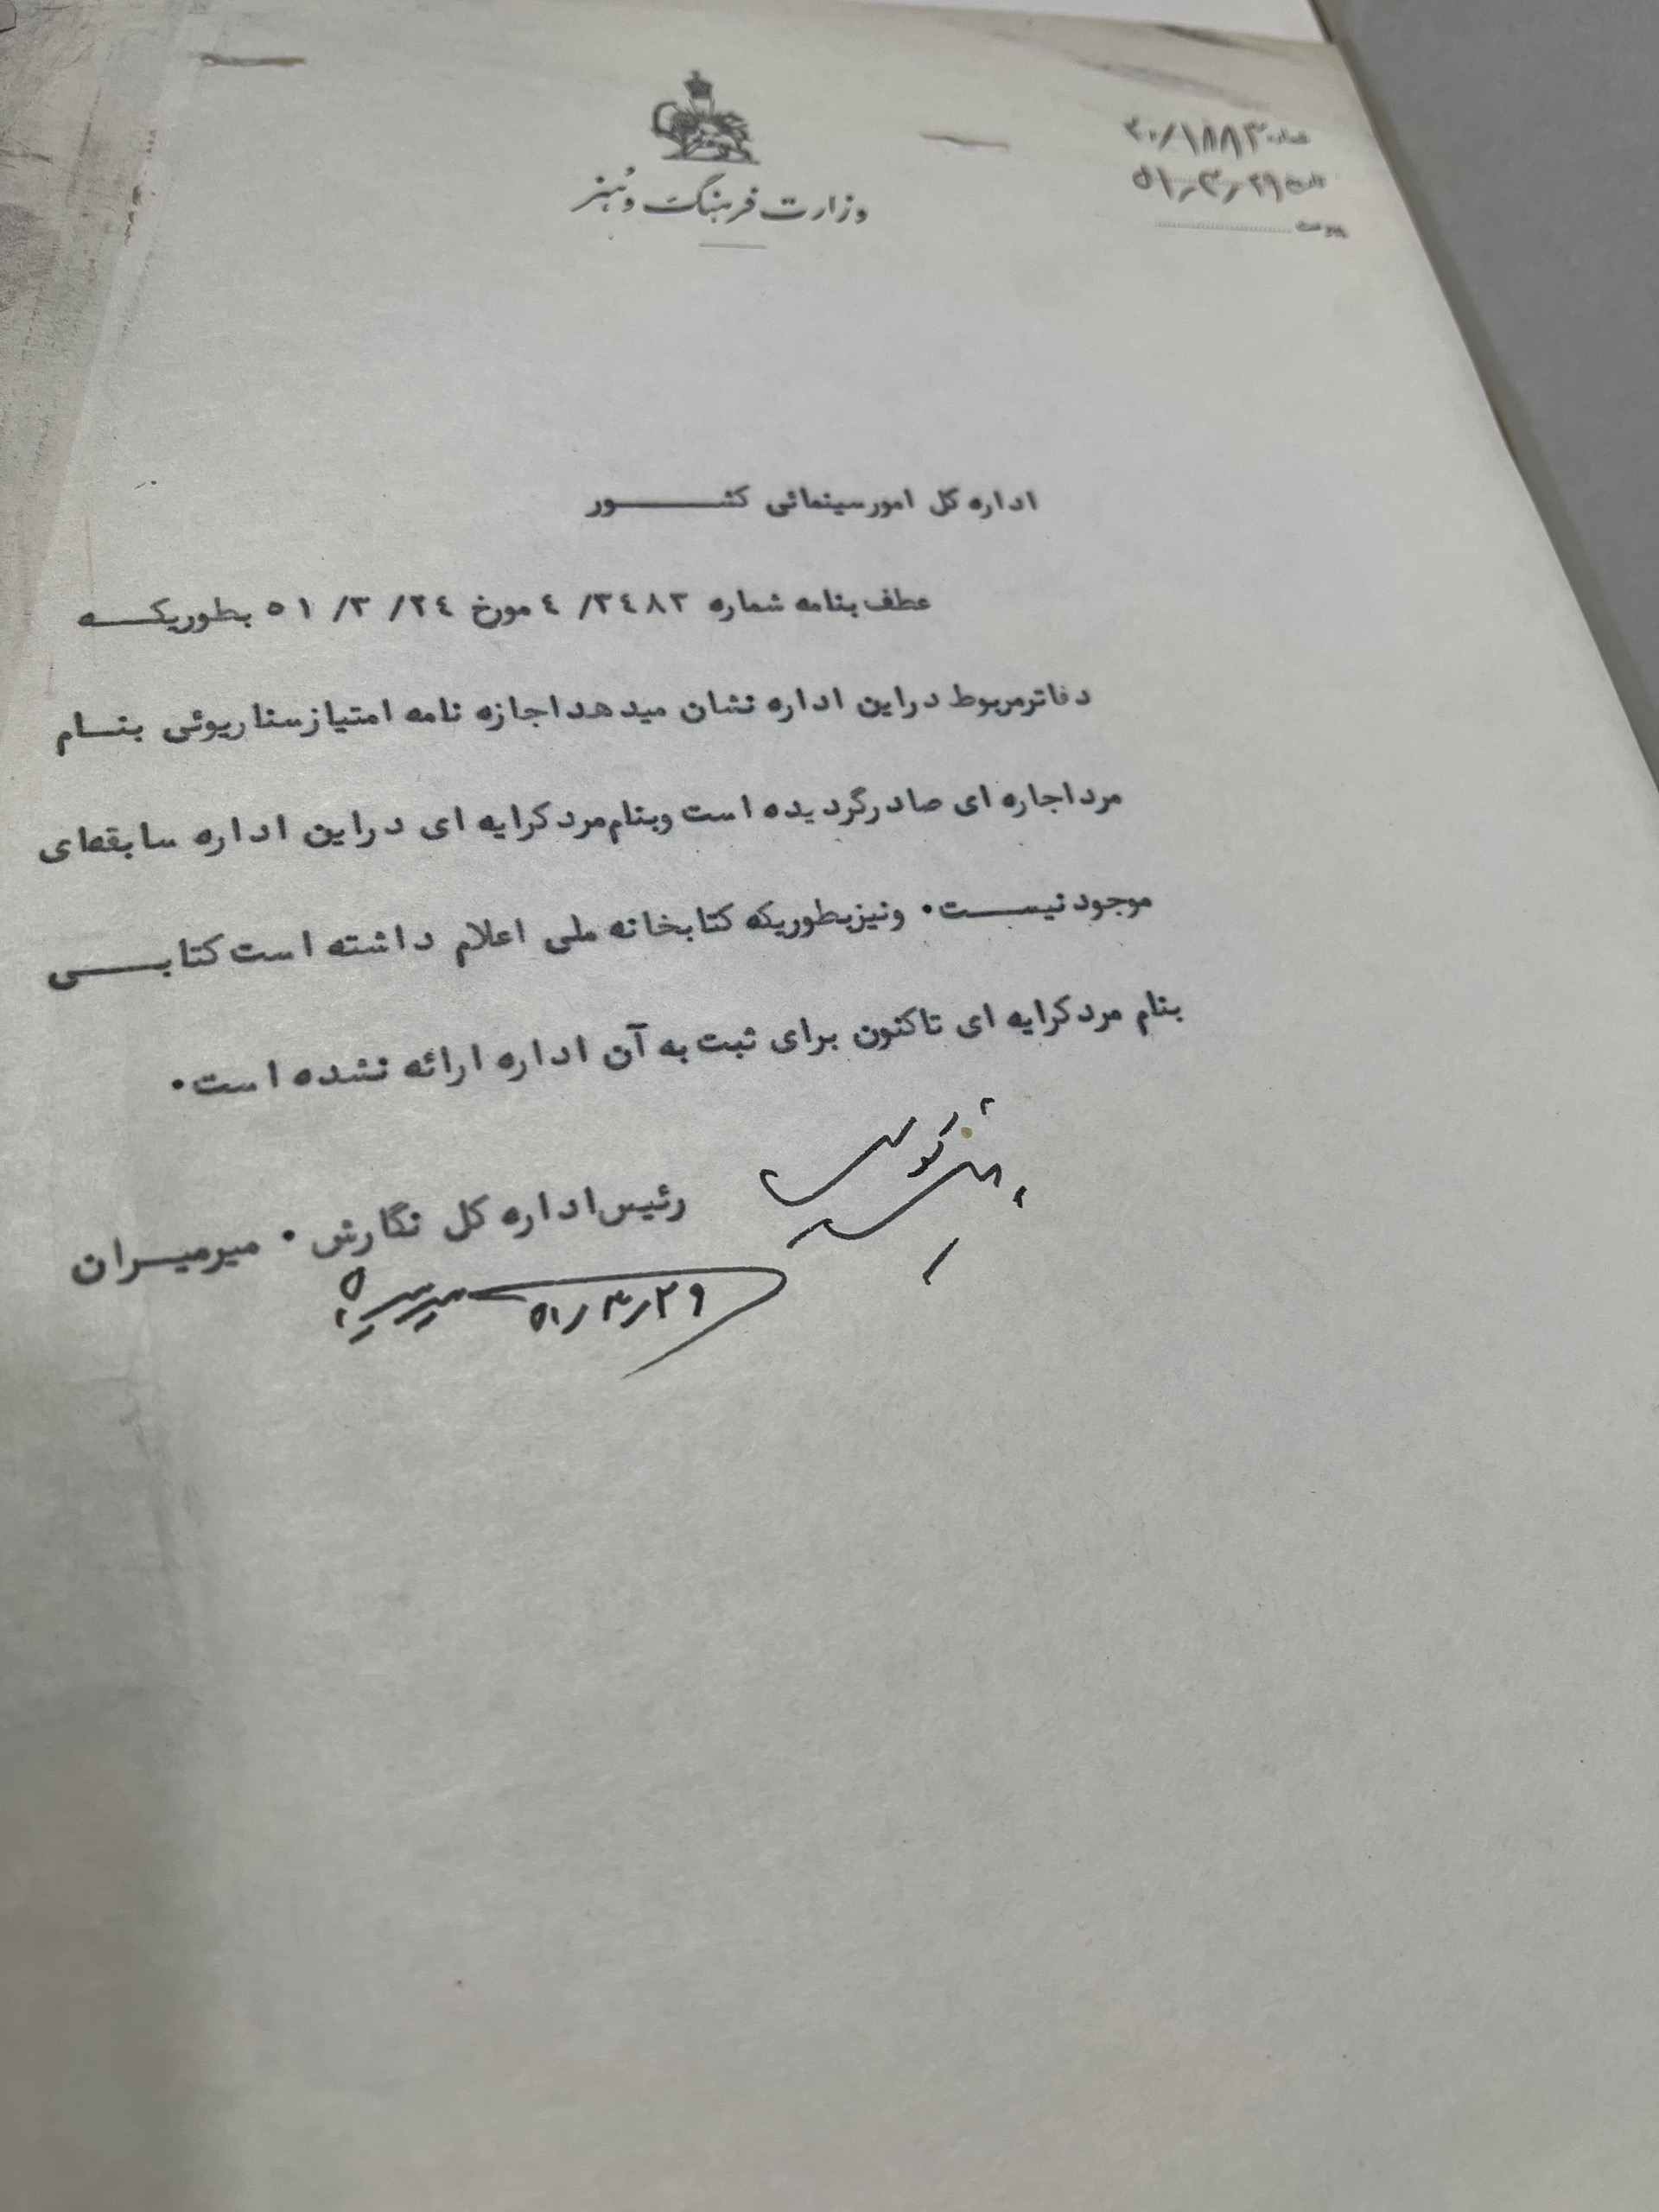 وزارت فرهنگ و هنر
شماره ۳۰/۱۸۸۳
تاریخ ۵۱/۳/۲۹
پیوست
اداره کل امور سینمائی کشــــور
عطف بنامه شماره ٣٤٨٣/ ٤ مورخ ٢٤/ ٣/ ٥١ بطوریکــه
دفاتر مربوط در این اداره نشان میدهد اجازه نامه امتیاز سناریوئی بنــام
مرد اجاره ای صادر گردیده است و بنام مرد کرایه ای در این اداره سابقه‌ای
موجود نیســت. و نیز بطوریکه کتابخانه ملی اعلام داشته است کتابــی
بنام مرد کرایه ای تاکنون برای ثبت به آن اداره ارائه نشده است.
رئیس اداره کل نگارش. میرمیــران
۵۱/۳/۲۹